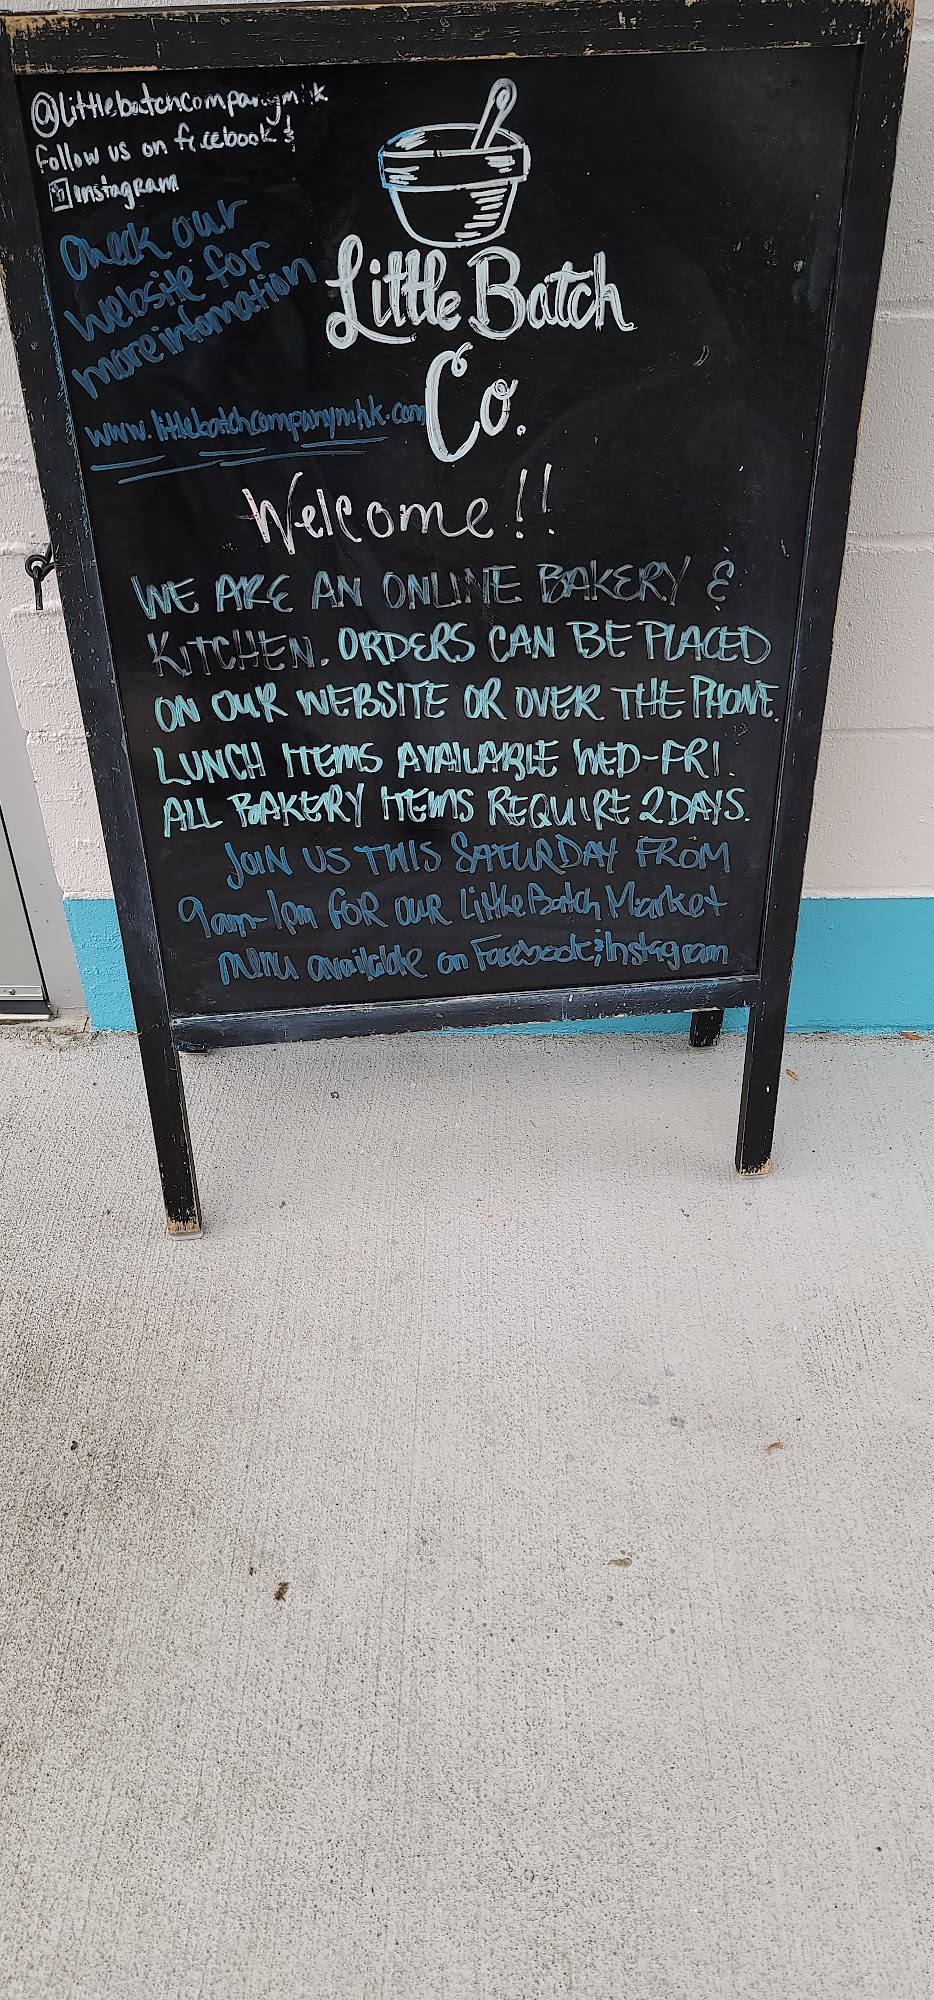 @littlebatchcompanymhk
Follow us on facebook &
Instagram
Check our
website for
more infomation
www.littlebatchcompanymhk.com
Little Batch
Co.
Welcome!!
WE ARE AN ONLINE BAKERY &
KITCHEN. ORDERS CAN BE PLACED
ON OUR WEBSITE OR OVER THE PHONE.
LUNCH ITEMS AVAILABLE WED-FRI.
ALL BAKERY ITEMS REQUIRE 2 DAYS.
JOIN US THIS SATURDAY FROM
9am-1pm FOR OUR Little Batch Market
menu available on Facebook & Instagram